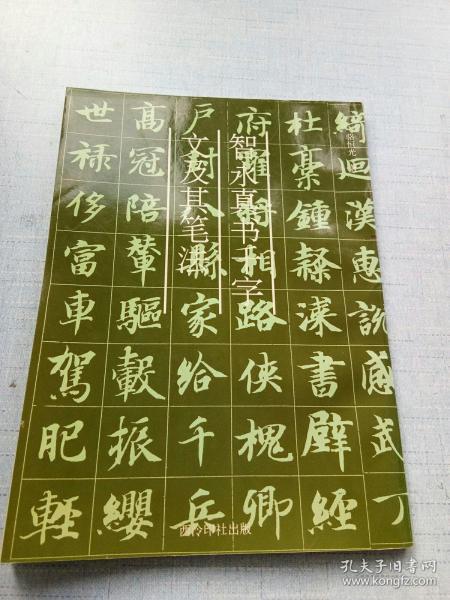 骆恒光
智永真书千字
文及其笔法
綺迴漢惠說感武丁
杜稾鍾隸漆書壁經
府羅將相路俠槐卿
户封八縣家給千兵
高冠陪輦驅轂振纓
世祿侈富車駕肥輕
西泠印社出版
孔夫子旧书网
www.kongfz.com